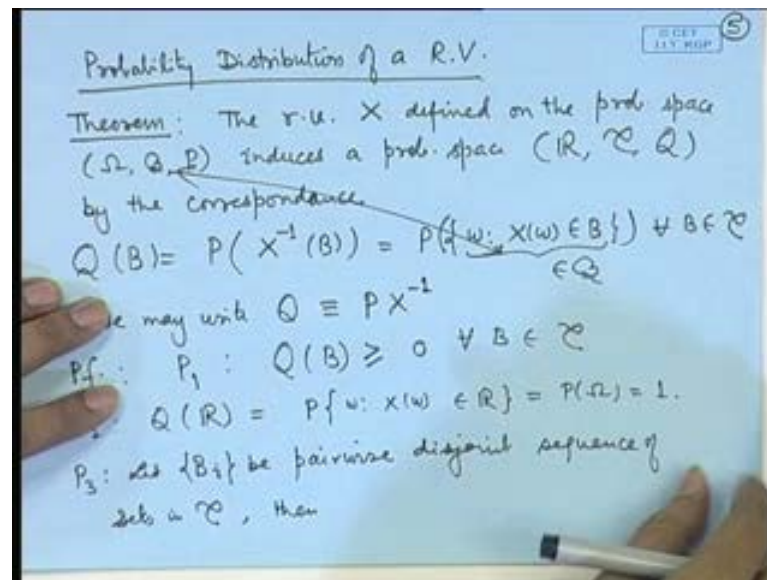 5
Probability Distribution of a R.V.
Theorem: The r.v. X defined on the prob space
(Ω, B, P) induces a prob. space (ℝ, C, Q)
by the correspondence
Q(B) = P(X⁻¹(B)) = P({ω: X(ω) ∈ B}) ∀ B ∈ C
∈ B
we may write Q ≡ PX⁻¹
Pf.: P₁: Q(B) ≥ 0 ∀ B ∈ C
Q(ℝ) = P{ω: X(ω) ∈ ℝ} = P(Ω) = 1.
P₃: Let {Bᵢ} be pairwise disjoint sequence of
sets in C, then